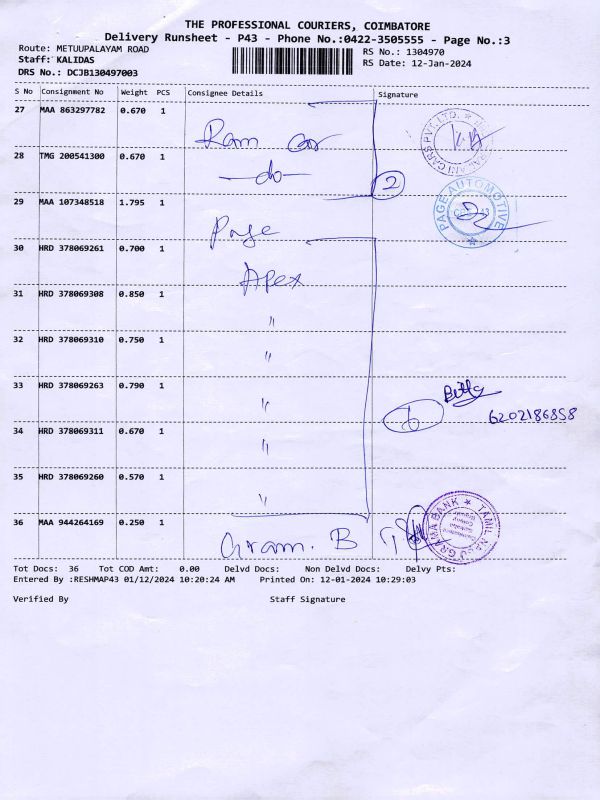 THE PROFESSIONAL COURIERS, COIMBATORE
Delivery Runsheet - P43 - Phone No.:0422-3505555 - Page No.:3
Route: METUUPALAYAM ROAD
RS No.: 1304970
Staff: KALIDAS
RS Date: 12-Jan-2024
DRS No.: DCJB130497003
S No Consignment No Weight PCS Consignee Details Signature
27 MAA 863297782 0.670 1
Ram Car
28 TMG 200541300 0.670 1
—do—
2
29 MAA 107348518 1.795 1
Page
PAGE AUTOMOTIVE
30 HRD 378069261 0.700 1
Apex
31 HRD 378069308 0.850 1
"
32 HRD 378069310 0.750 1
"
33 HRD 378069263 0.790 1
"
6
6202186858
34 HRD 378069311 0.670 1
"
35 HRD 378069260 0.570 1
"
36 MAA 944264169 0.250 1
Gram. B
TAMIL NADU GRAMA BANK
Tot Docs: 36 Tot COD Amt: 0.00 Delvd Docs: Non Delvd Docs: Delvy Pts:
Entered By :RESHMAP43 01/12/2024 10:20:24 AM Printed On: 12-01-2024 10:29:03
Verified By Staff Signature